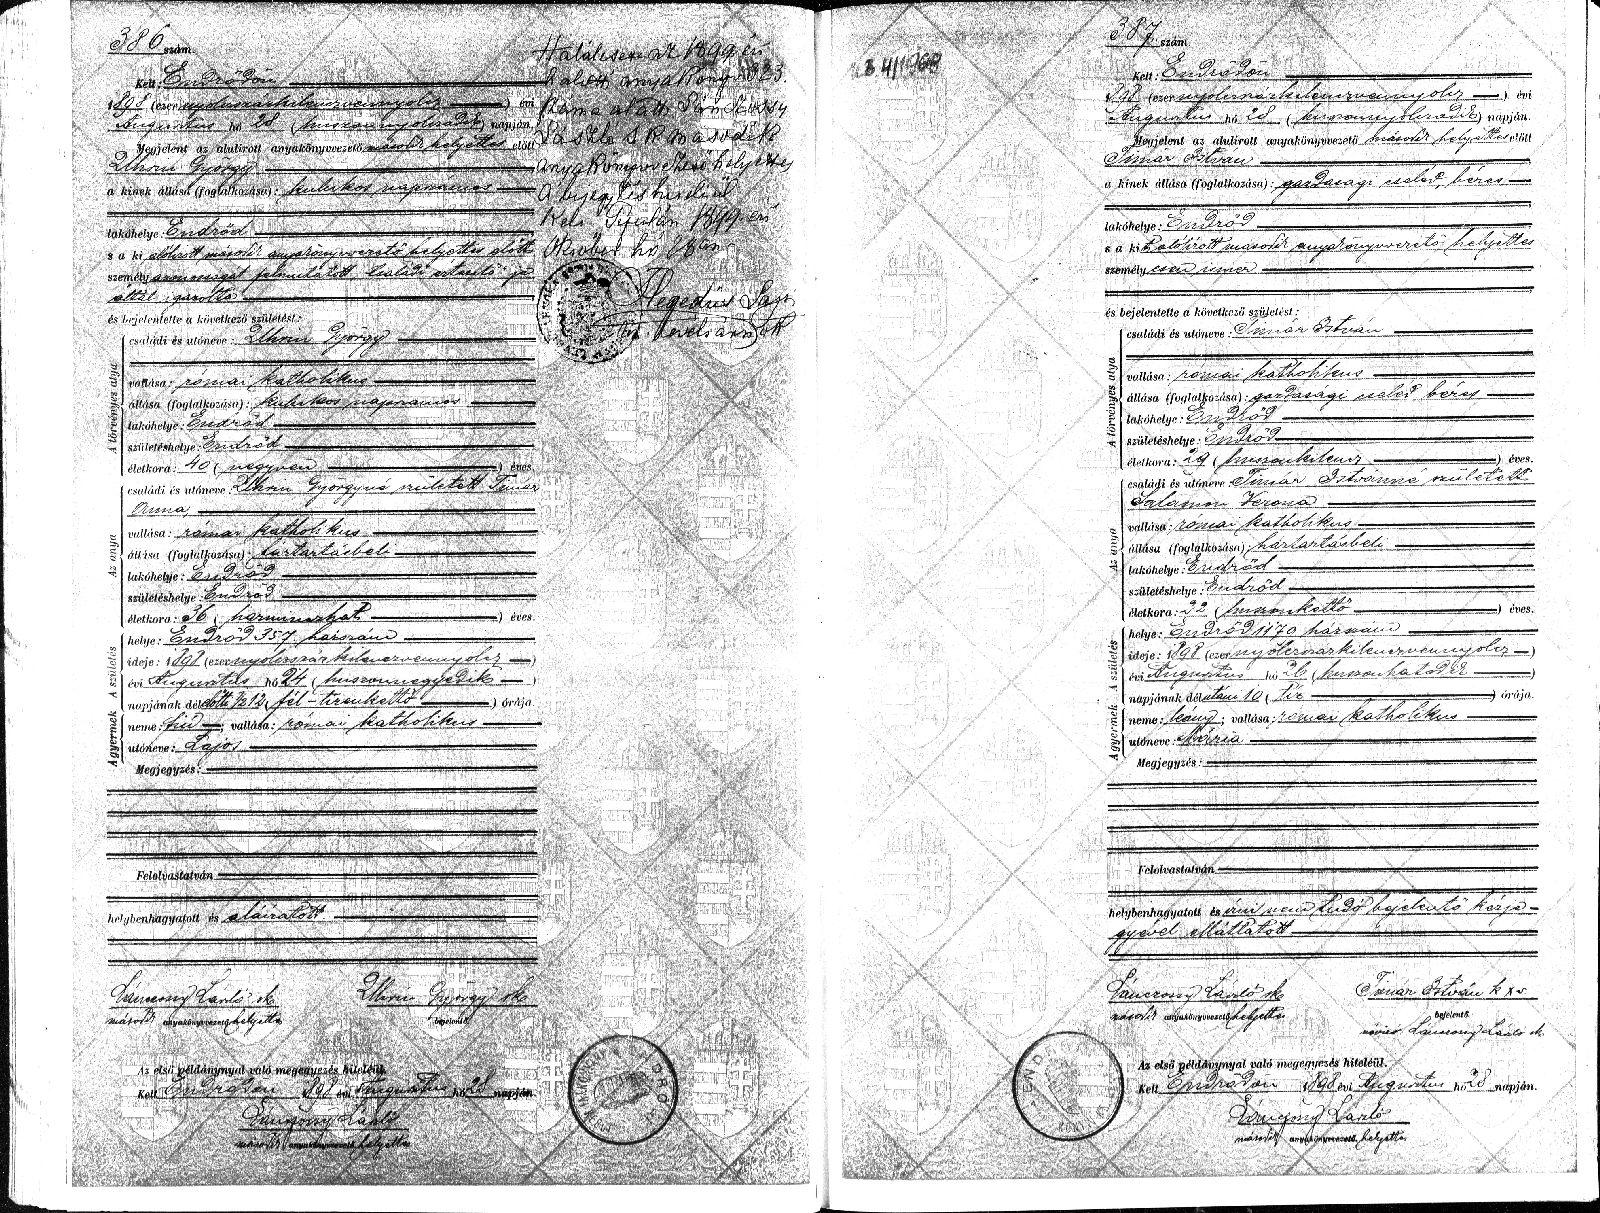 386 szám.
Kelt: Endrődön
1898 (ezernyolczszázkilenczvennyolcz) évi
Augusztus hó 28 (huszonnyolczadik) napján.
Megjelent az alulirott anyakönyvvezető másodk helyettes előtt
Uhrin György
a kinek állása (foglalkozása): kubikos napszámos
lakóhelye: Endrőd
s a ki alólirott másodk anyakönyvvezető helyettes előtt
személyazonosságát felmutatott
által igazolta
és bejelentette a következő születést:
A törvényes atya
családi és utóneve: Uhrin György
vallása: római katholikus
állása (foglalkozása): kubikos napszámos
lakóhelye: Endrőd
születéshelye: Endrőd
életkora: 40 (negyven) éves.
Az anya
családi és utóneve: Uhrin Györgyné született Timár
Anna,
vallása: római katholikus
állása (foglalkozása): háztartásbeli
lakóhelye: Endrőd
születéshelye: Endrőd
életkora: 36 (harminczhat) éves.
A születés
helye: Endrőd 357 házszám
ideje: 1898 (ezernyolczszázkilenczvennyolcz)
évi Augusztus hó 24 (huszonnegyedik)
napjának délelőtti ½12 (fél-tizenkettő) órája.
A gyermek
neme: fiú; vallása: római katholikus
utóneve: Lajos
Megjegyzés:
Felolvastatván
helybenhagyatott és aláiratott
László sk Uhrin György sk
másodk anyakönyvvezető helyettes bejelentő.
Az első példánynyal való megegyezés hiteléül.
Kelt Endrődön 1898 évi Augusztus hó 28 napján.
László
másodk anyakönyvvezető helyettes
Halálesete az 1899 évi
halotti anya könyv 223.
száma alatt
László sk második
anyakönyvvezető helyettes
Kelt 1899 évi
Október hó 18án
Hegedüs
387. szám
Kelt: Endrődön
1898 (ezernyolczszázkilenczvennyolcz) évi
Augusztus hó 28 (huszonnyolczadik) napján.
Megjelent az alulirott anyakönyvvezető másodk helyettes előtt
Timár István
a kinek állása (foglalkozása): gazdasági cseléd, béres
lakóhelye: Endrőd
s a kit alólirott másodk anyakönyvvezető helyettes
személyesen ismer
és bejelentette a következő születést:
A törvényes atya
családi és utóneve: Timár István
vallása: római katholikus
állása (foglalkozása): gazdasági cseléd béres
lakóhelye: Endrőd
születéshelye: Endrőd
életkora: 29 (huszonkilencz) éves.
Az anya
családi és utóneve: Timár Istvánné született
Salamon Verona
vallása: római katholikus
állása (foglalkozása): háztartásbeli
lakóhelye: Endrőd
születéshelye: Endrőd
életkora: 22 (huszonkettő) éves.
A születés
helye: Endrőd 1170 házszám
ideje: 1898 (ezernyolczszázkilenczvennyolcz)
évi Augusztus hó 26 (huszonhatodik)
napjának délutáni 10 (tíz) órája.
A gyermek
neme: leány; vallása: római katholikus
utóneve: Mária
Megjegyzés:
Felolvastatván
helybenhagyatott és irni nem tudó bejelentő kézje-
gyével elláttatott
László sk Timár István k x v
másodk anyakönyvvezető helyettes bejelentő.
László sk
Az első példánynyal való megegyezés hiteléül.
Kelt Endrődön 1898 évi Augusztus hó 28 napján.
László
másodk anyakönyvvezető helyettes